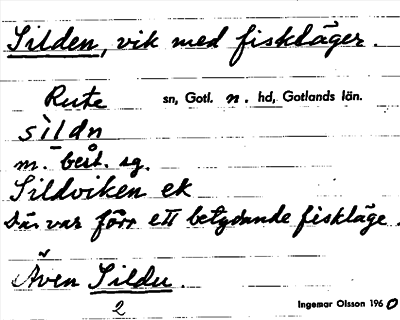 Silden, vik med fiskläger.
Rute sn, Gotl. n. hd, Gotlands län.
sìldn
m. best. sg.
Sildviken ek
Där var förr ett betydande fiskläge.
Även Sildu.
2
Ingemar Olsson 1960